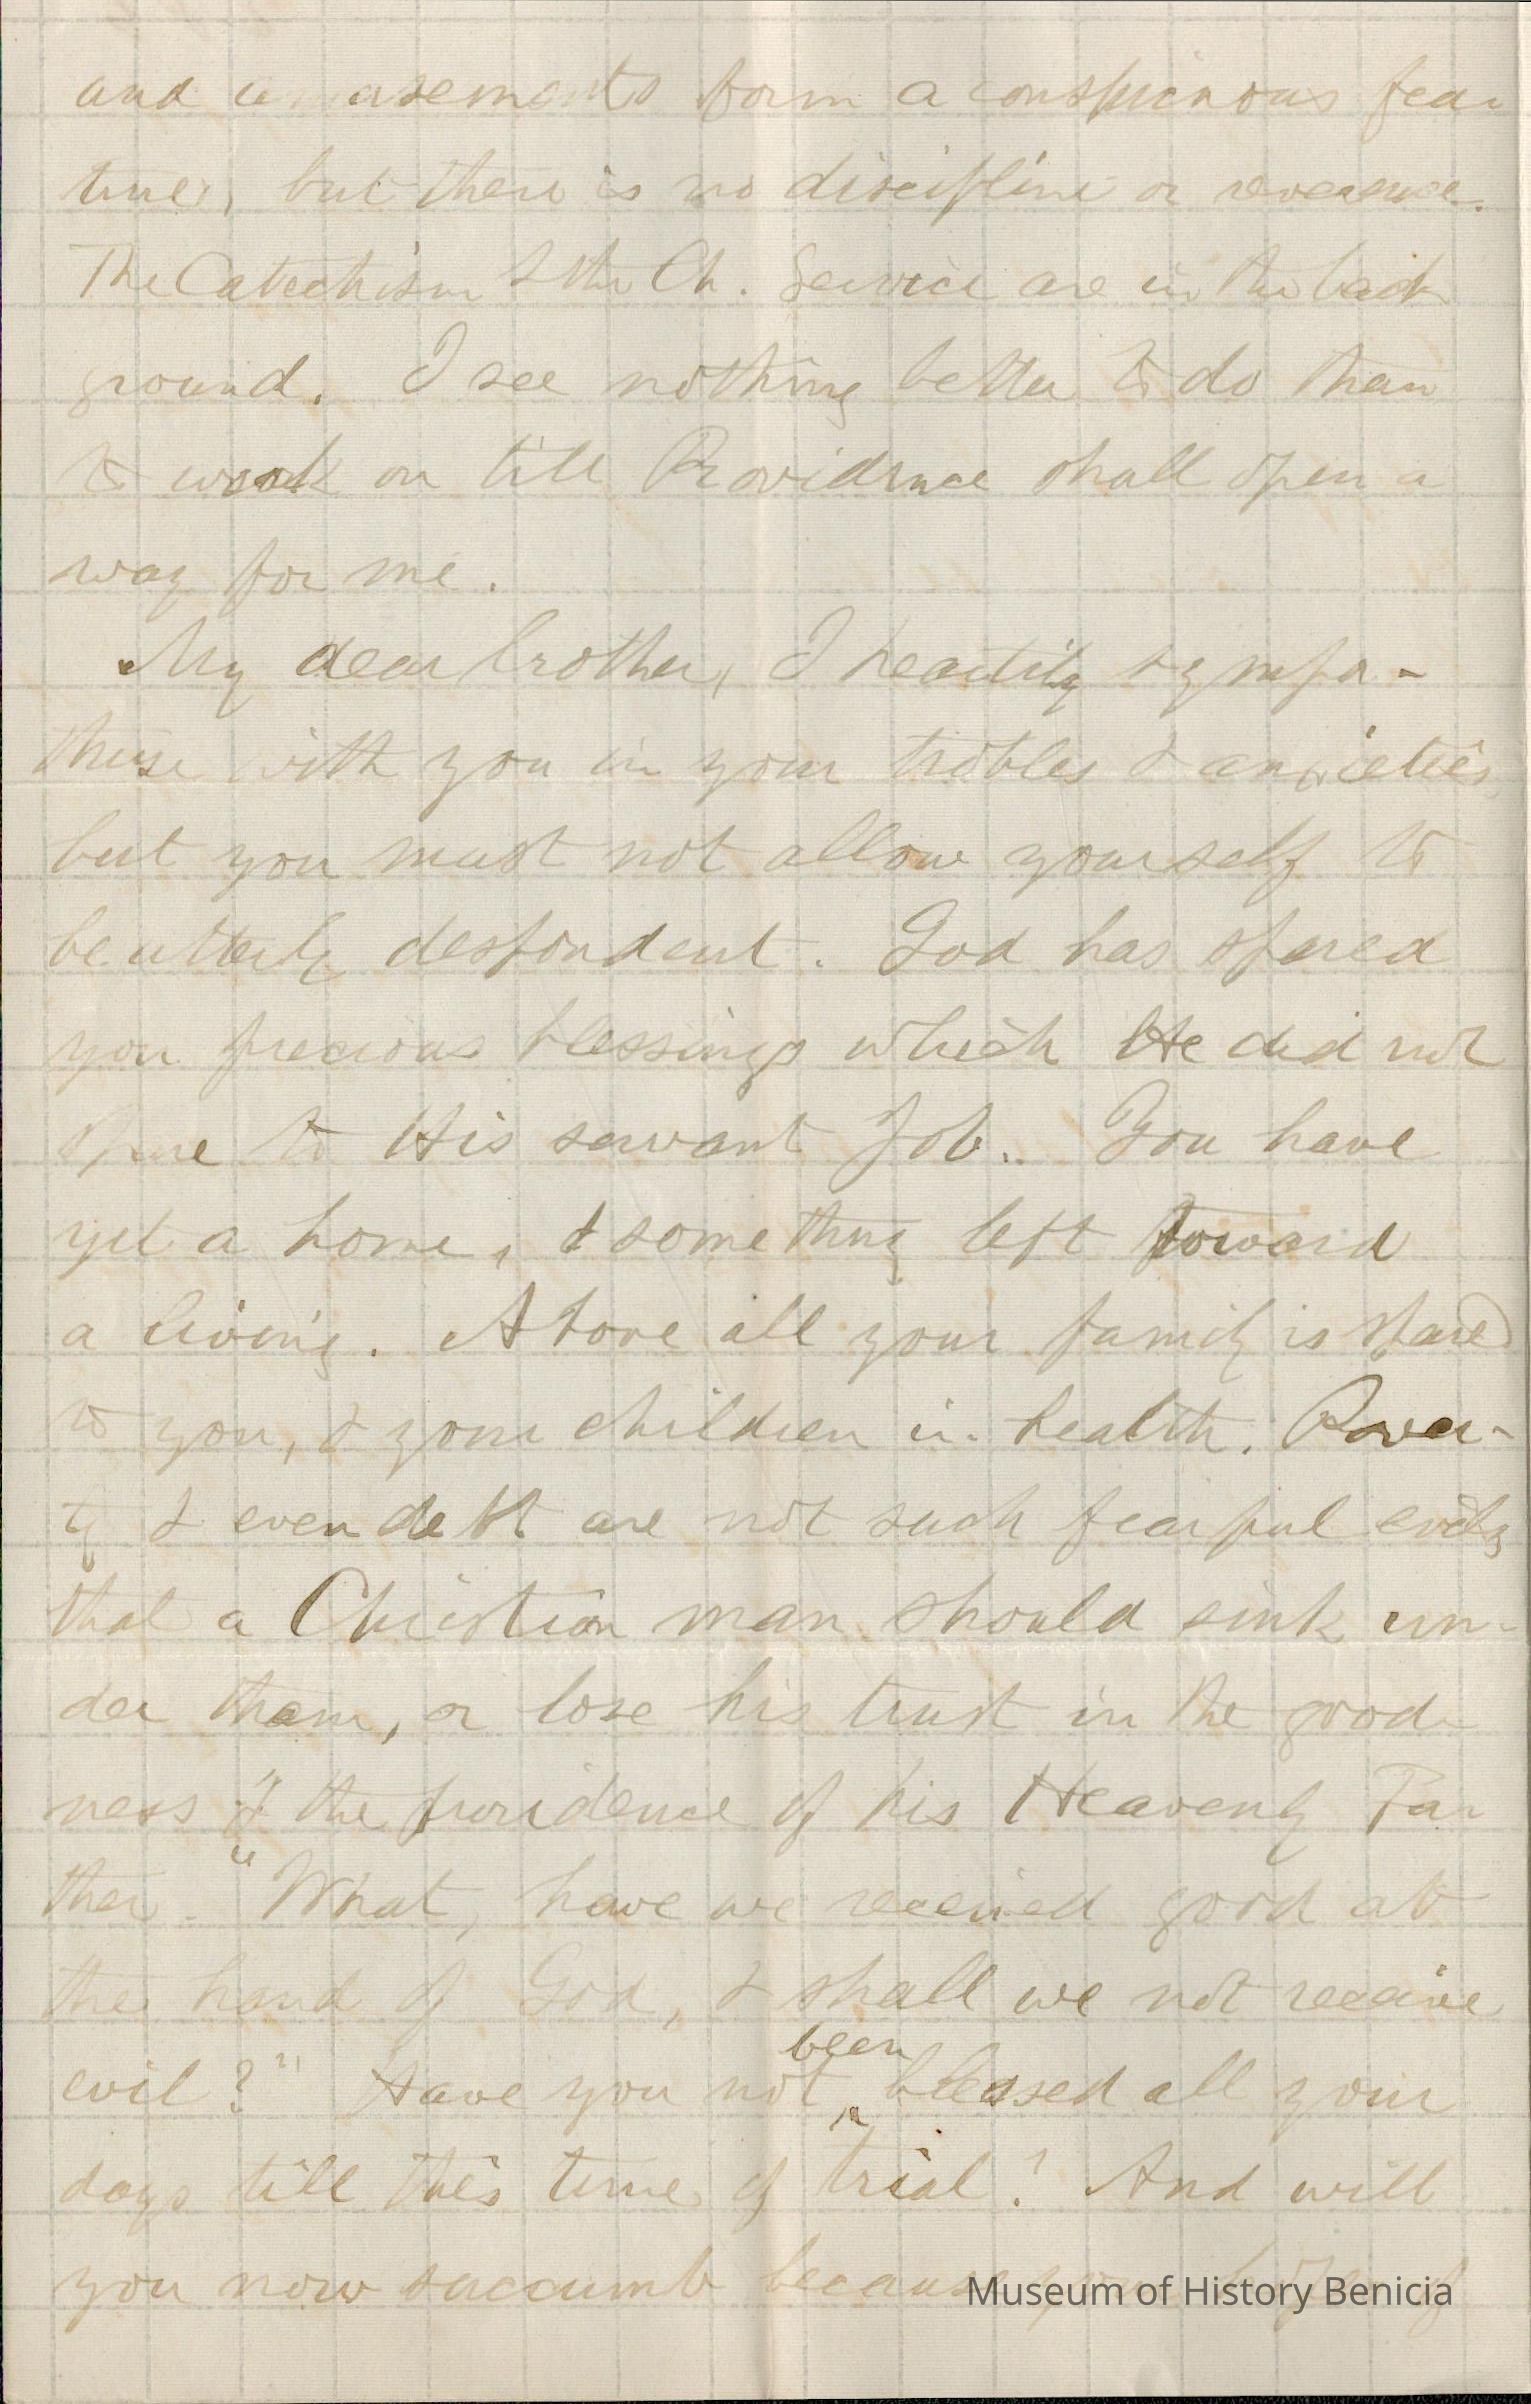 and amusements form a conspicuous fea-
ture, but there is no discipline or reverence.
The Catechism & the Ch. Service are in the back
ground. I see nothing better to do than
to work on till Providence shall open a
way for me.
My dear brother, I heartily sympa-
thise with you in your trobles & anxieties,
but you must not allow yourself to
be utterly despondent. God has spared
you precious blessings which He did not
spare to His servant Job. You have
yet a home, & something left toward
a living. Above all your family is spared
to you, & your children in health. Pover-
ty & even debt are not such fearful evils
that a Christian man should sink un-
der them, or lose his trust in the good-
ness & the providence of his Heavenly Fa-
ther. "What, have we received good at
the hand of God, & shall we not receive
evil?" Have you not been blessed all your
days till this time of trial? And will
you now succumb because your
Museum of History Benicia